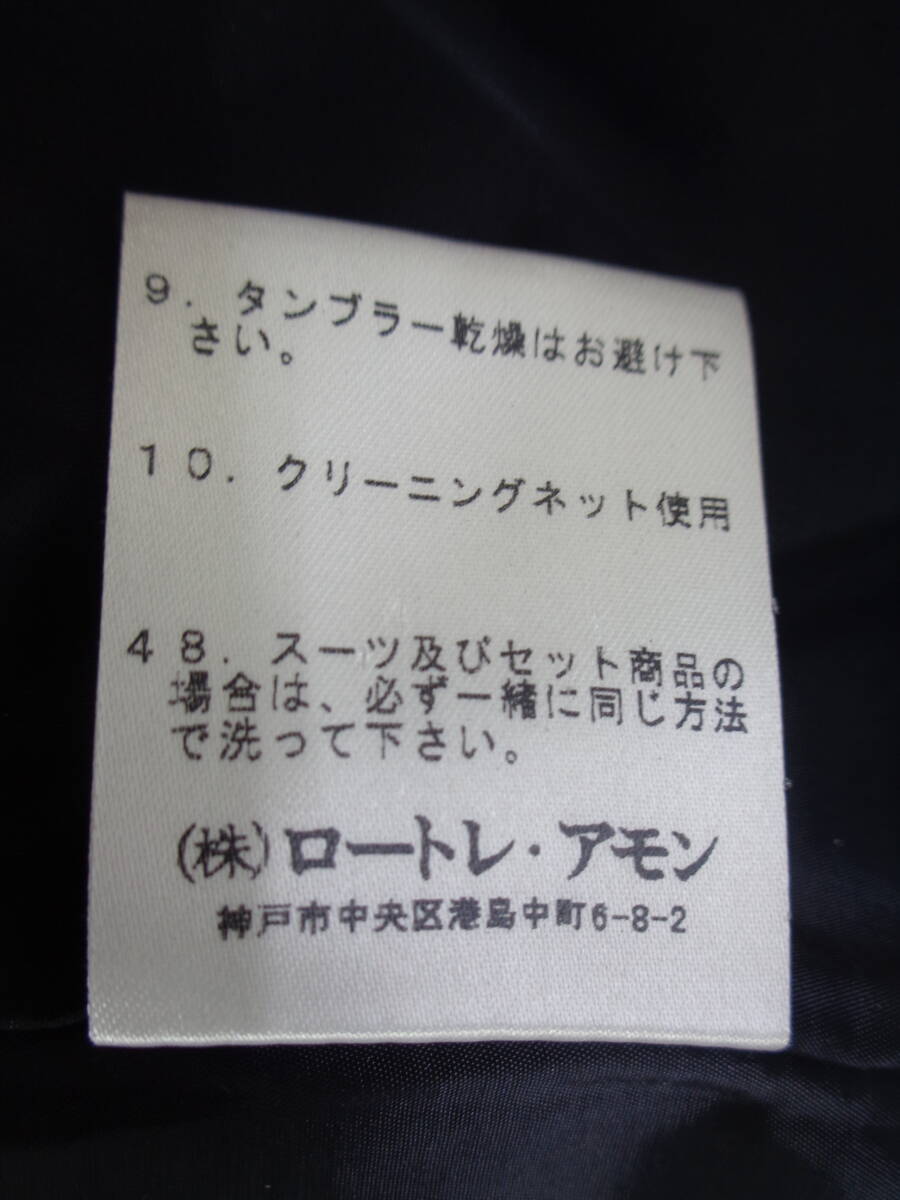 9. タンブラー乾燥はお避け下
さい。
10. クリーニングネット使用
48. スーツ及びセット商品の
場合は、必ず一緒に同じ方法
で洗って下さい。
(株)ロートレ・アモン
神戸市中央区港島中町6-8-2